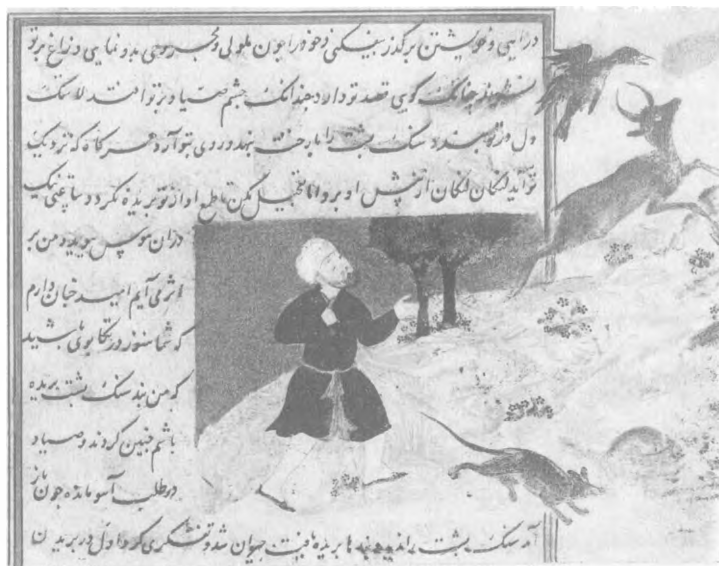 درآیی و خویشتن بر گذر بیفکنی و خود را چون ملولی و مجروحی بدو نمایی و زاغ بر تو
نشیند چنانک گویی قصد تو دارد چندانک چشم صیاد بر تو افتد لا شک
دل در تو بندد سنگ پشت را با رخت بنهد و روی بتو آرد هر گاه که نزدیک
تو آید لنگان لنگان از پیش او برو اما تعجیل مکن تا طمع او از تو بریده نگردد ساعتی نیک
در آن بوس پوید و من بر
اثر می آیم امید چنان دارم
که شما هنوز در تکاپوی باشید
که من بند سنگ پشت بریده
باشم چنین کردند و صیاد
در طلب آهو مانده چون باز
آمد سنگ پشت را ندید بندها بریده یافت حیران شد و تفکری کرد اول در بریدن